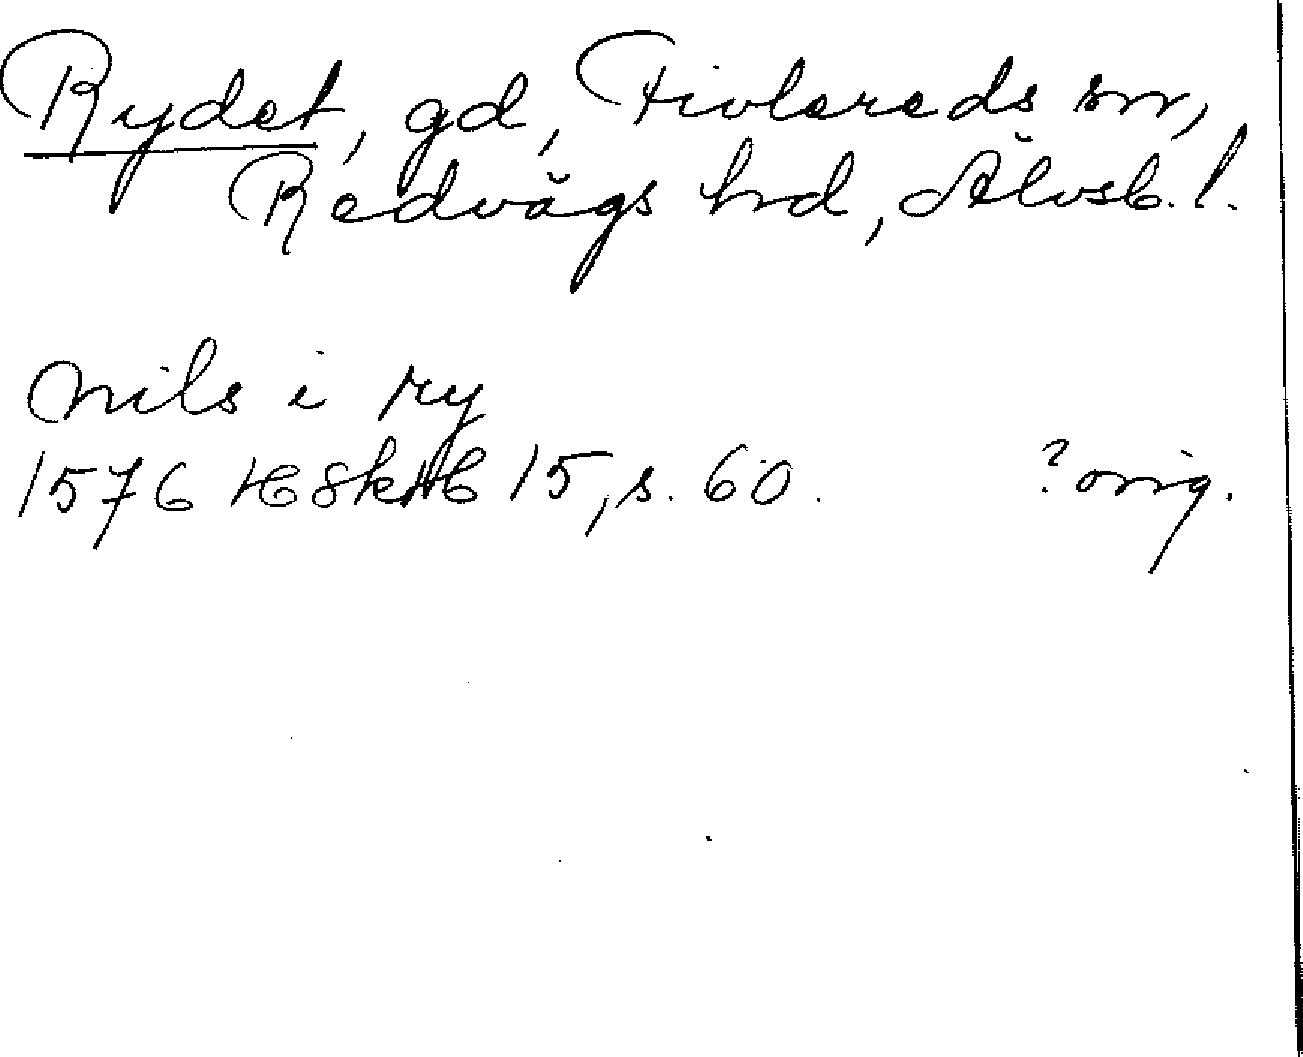 Rydet, gd, Tivlereds sn,
Redvägs hrd, Älvsb. l.
Nils i ry
1576 15, s. 60. ? orig.